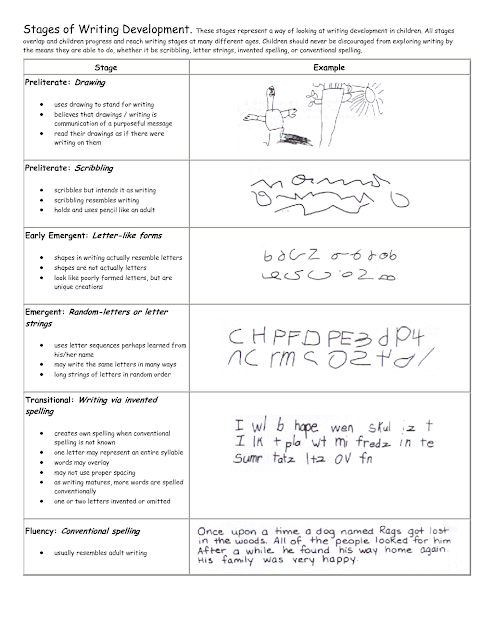 Stages of Writing Development. These stages represent a way of looking at writing development in children. All stages
overlap and children progress and reach writing stages at many different ages. Children should never be discouraged from exploring writing by
the means they are able to do, whether it be scribbling, letter strings, invented spelling, or conventional spelling.
Stage
Example
Preliterate: Drawing
• uses drawing to stand for writing
• believes that drawings / writing is
communication of a purposeful message
• read their drawings as if there were
writing on them
Preliterate: Scribbling
• scribbles but intends it as writing
• scribbling resembles writing
• holds and uses pencil like an adult
Early Emergent: Letter-like forms
• shapes in writing actually resemble letters
• shapes are not actually letters
• look like poorly formed letters, but are
unique creations
Emergent: Random-letters or letter
strings
• uses letter sequences perhaps learned from
his/her name
• may write the same letters in many ways
• long strings of letters in random order
C H P F D P E 3 d P 4
Transitional: Writing via invented
spelling
• creates own spelling when conventional
spelling is not known
• one letter may represent an entire syllable
• words may overlay
• may not use proper spacing
• as writing matures, more words are spelled
conventionally
• one or two letters invented or omitted
I wl b hape wen skul iz t
I lk t pla wt mi fredz in te
Sumr tatz ltz ov fn
Fluency: Conventional spelling
• usually resembles adult writing
Once upon a time a dog named Rags got lost
in the woods. All of the people looked for him
After a while he found his way home again.
His family was very happy.